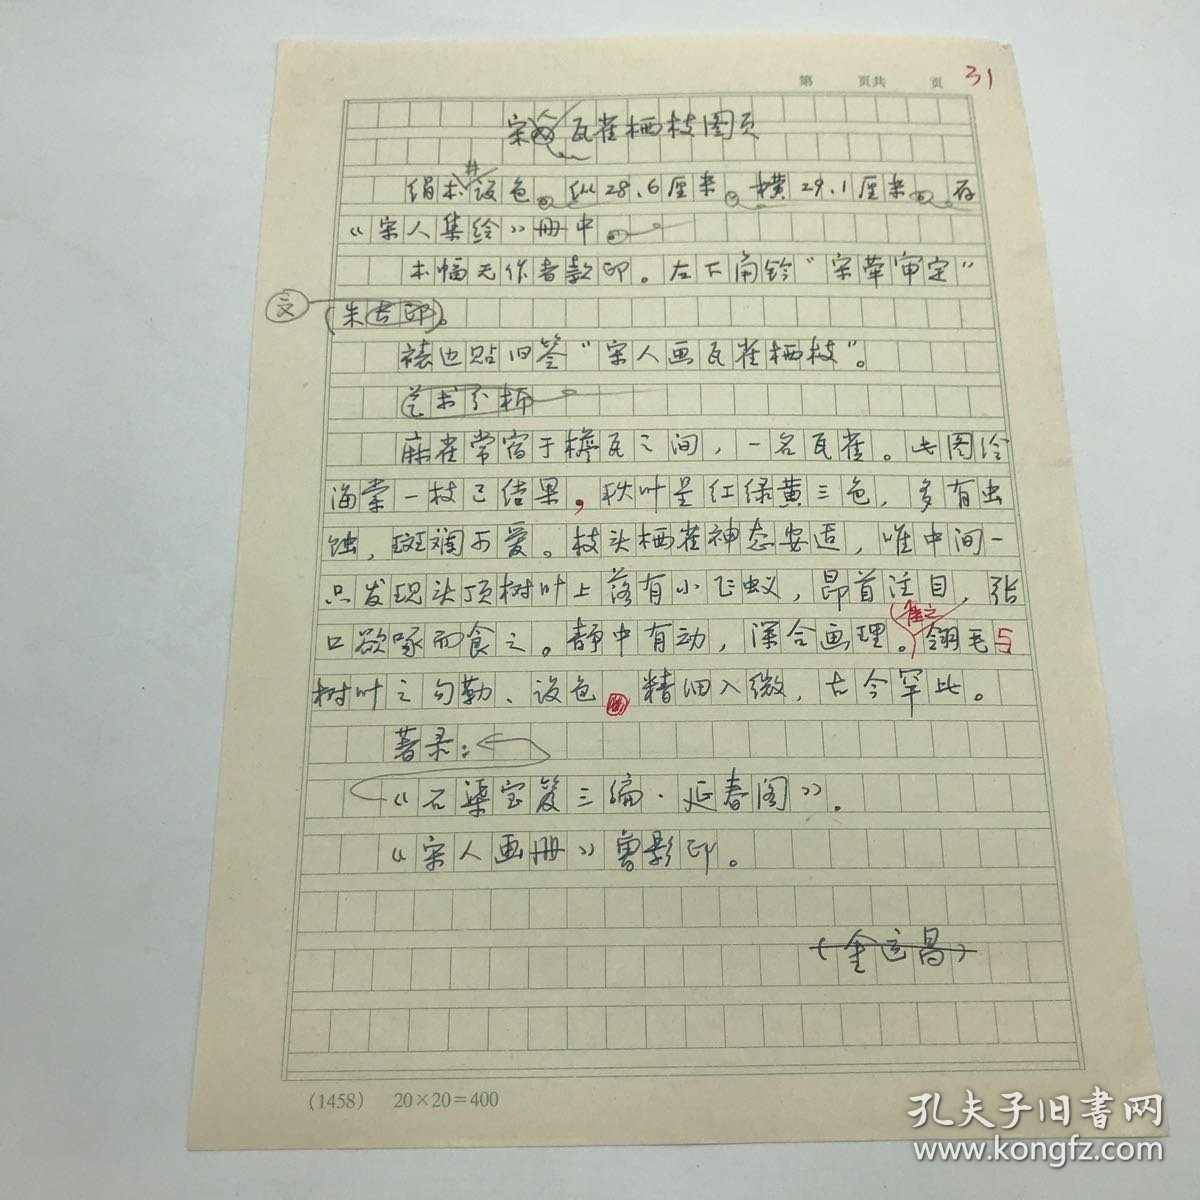 第 页共 页 31
宋人瓦雀栖枝图页
绢本设色。纵28.6厘米。横29.1厘米。存
《宋人集绘》册中。
本幅无作者款印。左下角钤“宋荦审定”
文
(朱古印)。
裱边贴旧签“宋人画瓦雀栖枝”。
艺术分析
麻雀常宿于檐瓦之间,一名瓦雀。此图绘
海棠一枝已结果,秋叶呈红绿黄三色,多有虫
蚀,斑斓可爱。枝头栖雀神态安适,唯中间一
只发现头顶树叶上落有小飞蚁,昂首注目,张
口欲啄而食之。静中有动,深合画理。雀之翎毛与
树叶之勾勒、设色 精细入微,古今罕比。
著录:
《石渠宝笈三编·延春阁》。
《宋人画册》曾影印。
(金运昌)
(1458) 20×20=400
孔夫子旧书网
www.kongfz.com